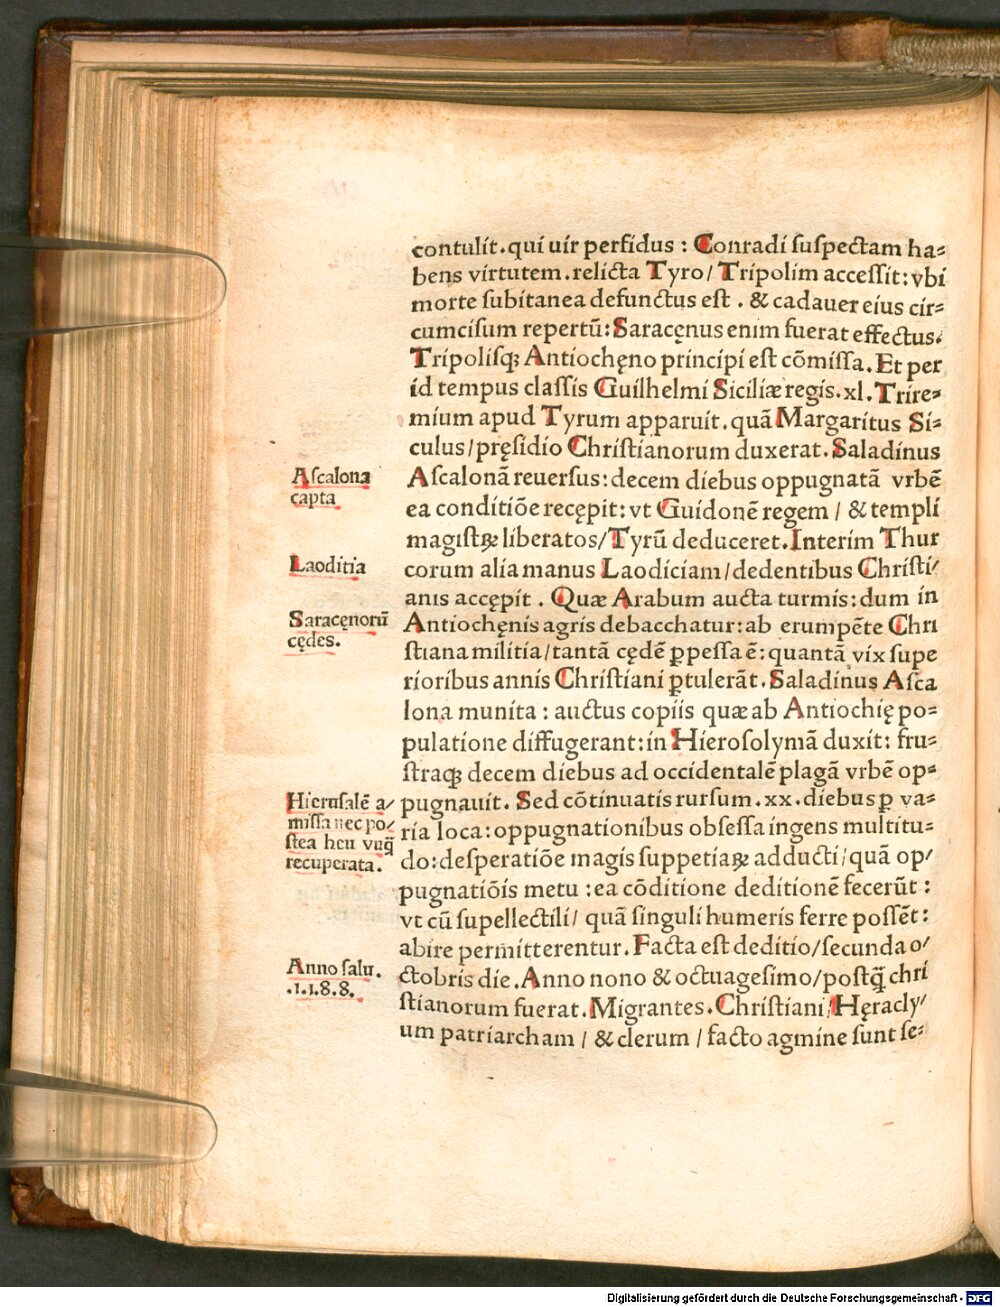 contulit.qui uir perfidus : Conradi suspectam ha=
bens virtutem.relicta Tyro/ Tripolim accessit:vbi
morte subitanea defunctus est . & cadauer eius cir=
cumcisum repertũ:Saracęnus enim fuerat effectus.
Tripolisqꝫ Antiochęno principi est cõmissa. Et per
id tempus classis Guilhelmi Siciliæ regis.xl. Trire=
mium apud Tyrum apparuit.quã Margaritus Si=
culus/pręsidio Christianorum duxerat. Saladinus
Ascalona
capta
Ascalonã reuersus:decem diebus oppugnatã vrbẽ
ea conditiõe recępit: vt Guidonẽ regem / & templi
magistꝝ liberatos/Tyrũ deduceret.Interim Thur
Laoditia
corum alia manus Laodiciam/dedentibus Christi/
anis accępit . Quæ Arabum aucta turmis:dum in
Saracęnorũ
cędes.
Antiochęnis agris debacchatur:ab erumpẽte Chri
stiana militia/tantã cędẽ ꝑpessa ẽ:quantã vix supe
rioribus annis Christiani ꝑtulerãt. Saladinus Asca
lona munita : auctus copiis quæ ab Antiochię po=
pulatione diffugerant:in Hierosolymã duxit: fru=
straqꝫ decem diebus ad occidentalẽ plagã vrbẽ op=
Hierusalẽ a/
missa nec po/
stea heu vnq̃
recuperata.
pugnauit. Sed cõtinuatis rursum.xx.diebus ꝑ va=
ria loca:oppugnationibus obsessa ingens multitu=
do:desperatiõe magis suppetiaꝝ adducti/quã op/
pugnatiõis metu :ea cõditione deditionẽ fecerũt :
vt cũ supellectili/ quã singuli humeris ferre possẽt:
abire permitterentur. Facta est deditio/secunda o/
Anno salu.
.1.1.8.8.
ctobris die. Anno nono & octuagesimo/postq̃ chri
stianorum fuerat. Migrantes.Christiani/Hęracly/
um patriarcham / & clerum / facto agmine sunt se=
Digitalisierung gefördert durch die Deutsche Forschungsgemeinschaft - DFG